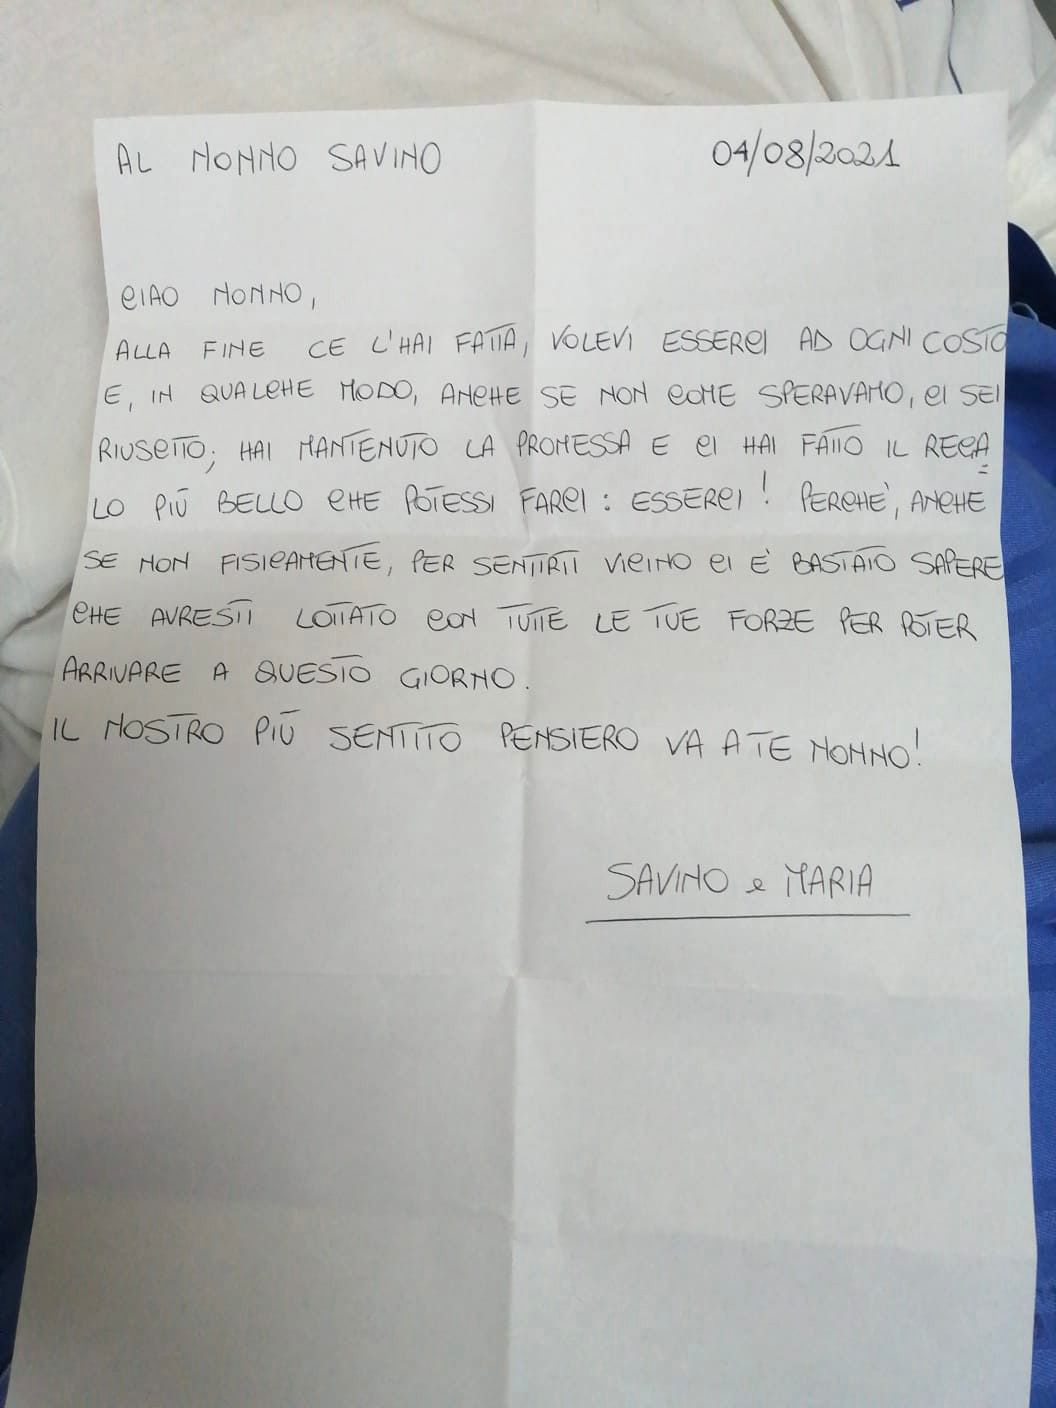 AL NONNO SAVINO 04/08/2021
CIAO NONNO,
ALLA FINE CE L'HAI FATTA, VOLEVI ESSERCI AD OGNI COSTO
E, IN QUALCHE MODO, ANCHE SE NON COME SPERAVAMO, CI SEI
RIUSCITO; HAI MANTENUTO LA PROMESSA E CI HAI FATTO IL REGA=
LO PIÙ BELLO CHE POTESSI FARCI: ESSERCI! PERCHÈ, ANCHE
SE NON FISICAMENTE, PER SENTIRTI VICINO CI È BASTATO SAPERE
CHE AVRESTI LOTTATO CON TUTTE LE TUE FORZE PER POTER
ARRIVARE A QUESTO GIORNO.
IL NOSTRO PIÙ SENTITO PENSIERO VA A TE NONNO!
SAVINO e MARIA